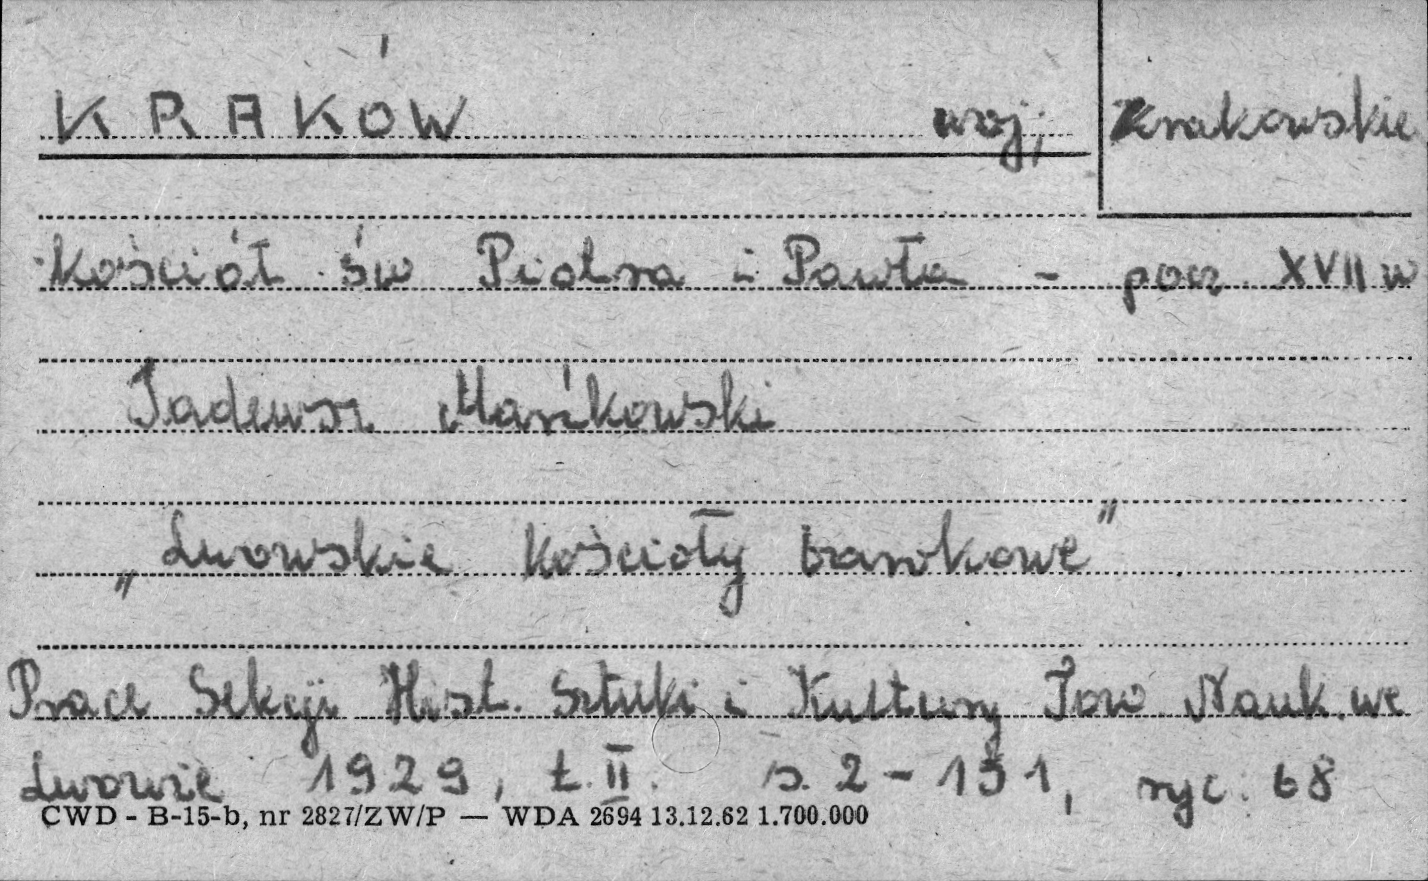 KRAKÓW woj; Krakowskie
Kościół św Piotra i Pawła - pocz XVII w
Tadeusz Mańkowski
„Lwowskie kościoły barokowe"
Prace Sekcji Hist. Sztuki i Kultury Tow Nauk. we
Lwowie 1929, t. II. s. 2-151, ryc. 68
CWD - B-15-b, nr 2827/ZW/P — WDA 2694 13.12.62 1.700.000